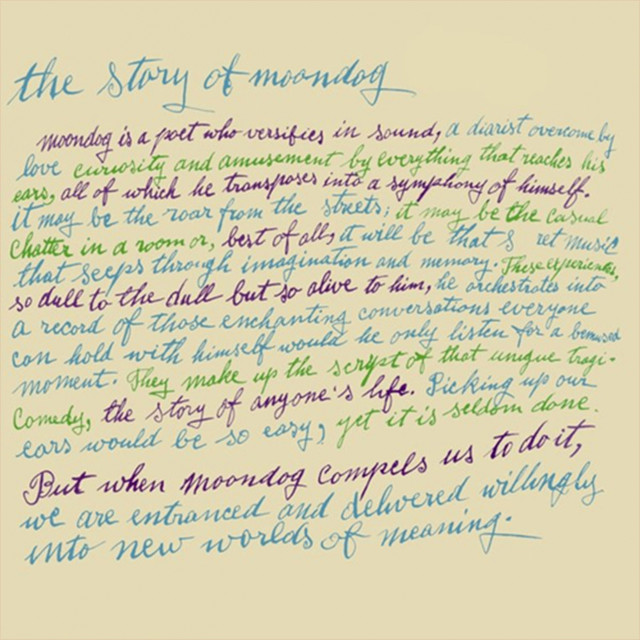 the story of moondog
moondog is a poet who versifies in sound, a diarist overcome by
love curiosity and amusement by everything that reaches his
ears, all of which he transposes into a symphony of himself.
it may be the roar from the streets; it may be the casual
Chatter in a room or, best of all, it will be that s ret music
that seeps through imagination and memory. These experiences,
so dull to the dull but so alive to him, he orchestrates into
a record of those enchanting conversations everyone
can hold with himself would he only listen for a bemused
moment. They make up the script of that unique tragi-
Comedy, the story of anyone's life. Picking up our
ears would be so easy, yet it is seldom done.
But when moondog compels us to do it,
we are entranced and delivered willingly
into new worlds of meaning.